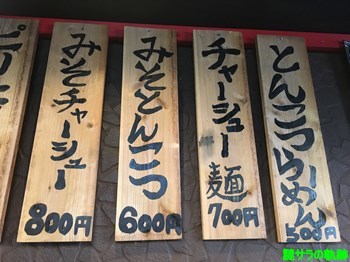 とんこつらーめん
500円
チャーシュー麺
700円
みそとんこつ
600円
みそチャーシュー
800円
麺サラの軌跡